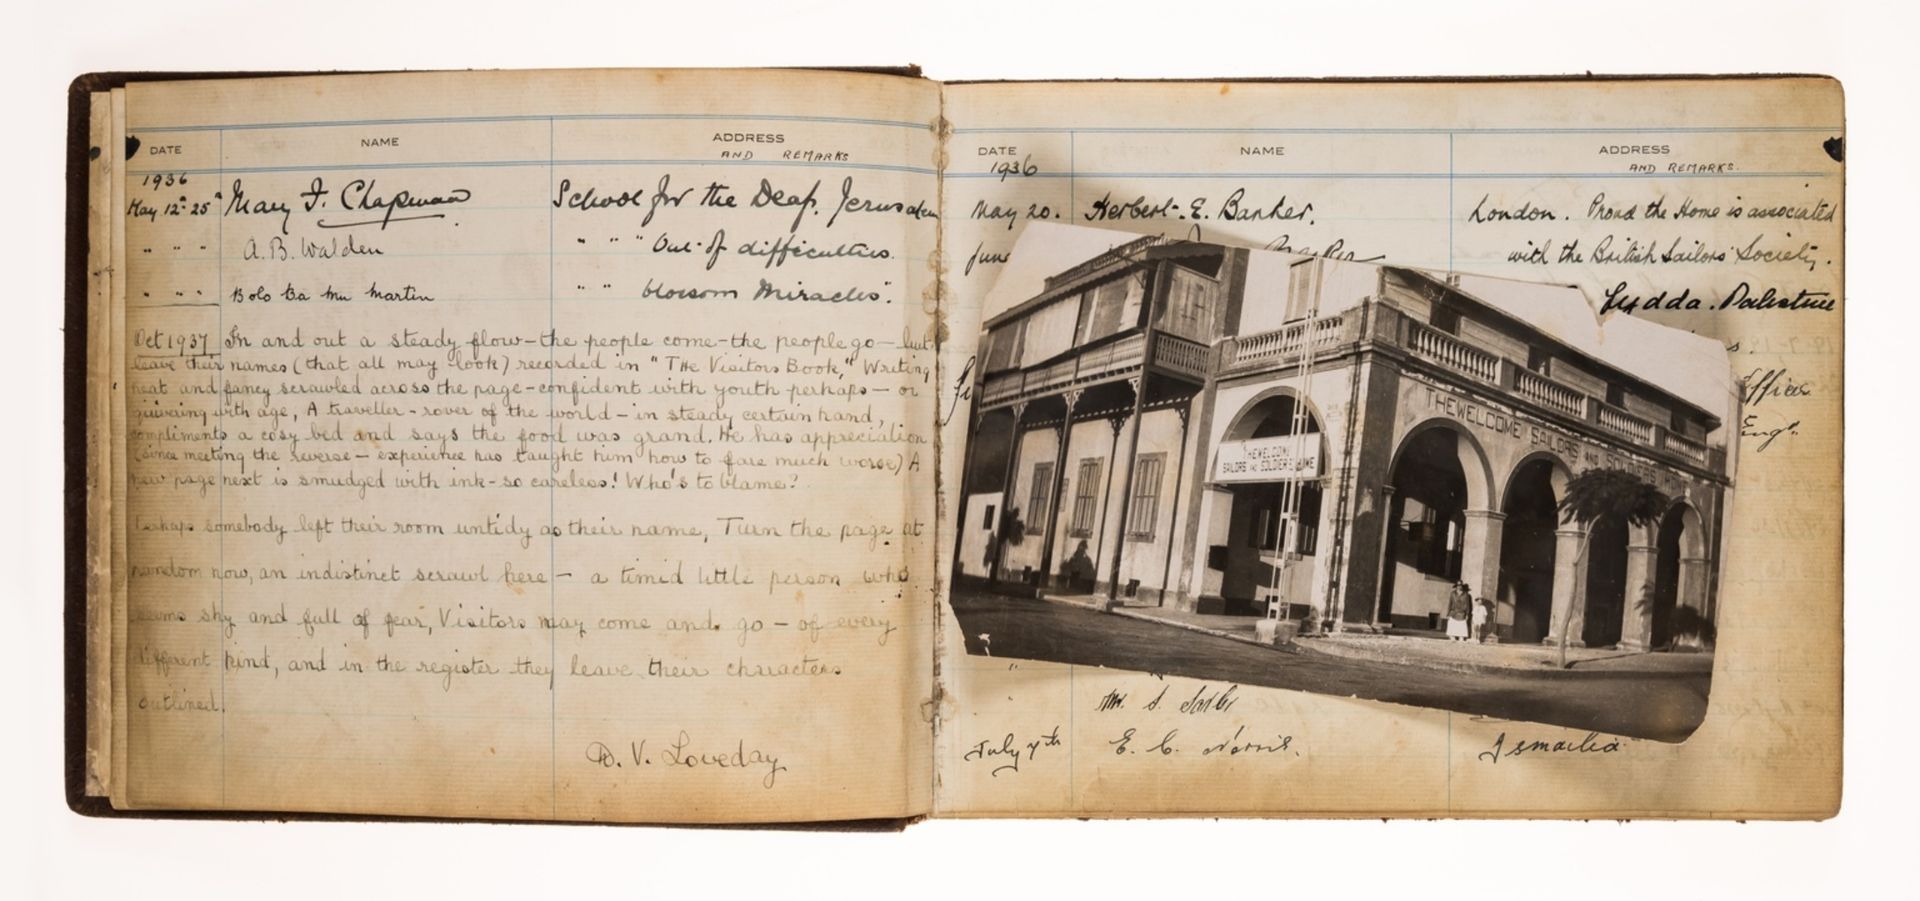 DATE NAME ADDRESS
AND REMARKS
1936
May 12th 25th Mary F. Chapman School for the Deaf, Jerusalem
" " " A. B. Walden " " " Out of difficulties
" " " Bolo Ba Mu Martin " " blossom Miracles".
Oct 1937 In and out a steady flow - the people come - the people go - but
leave their names (that all may look) recorded in "The Visitors Book," Writing
neat and fancy scrawled across the page - confident with youth perhaps - or
quivering with age, A traveller - rover of the world - in steady certain hand,
compliments a cosy bed and says the food was grand. He has appreciation
(since meeting the reverse - experience has taught him how to fare much worse) A
new page next is smudged with ink - so careless! Who's to blame?
Perhaps somebody left their room untidy as their name, Turn the page at
random now, an indistinct scrawl here - a timid little person who
seems shy and full of fear, Visitors may come and go - of every
different kind, and in the register they leave their characters
outlined.
D. V. Loveday
DATE NAME ADDRESS
1936 AND REMARKS.
May 20. Herbert. E. Barker. London. Proud the Home is associated
June with the British Sailors' Society.
Lydda. Palestine
Officer
Engr.
THE WELCOME
SAILORS AND SOLDIERS HOME
THE WELCOME SAILORS AND SOLDIERS HOME
"
Mr. S.
July 7th E. C. Norris. Ismailia